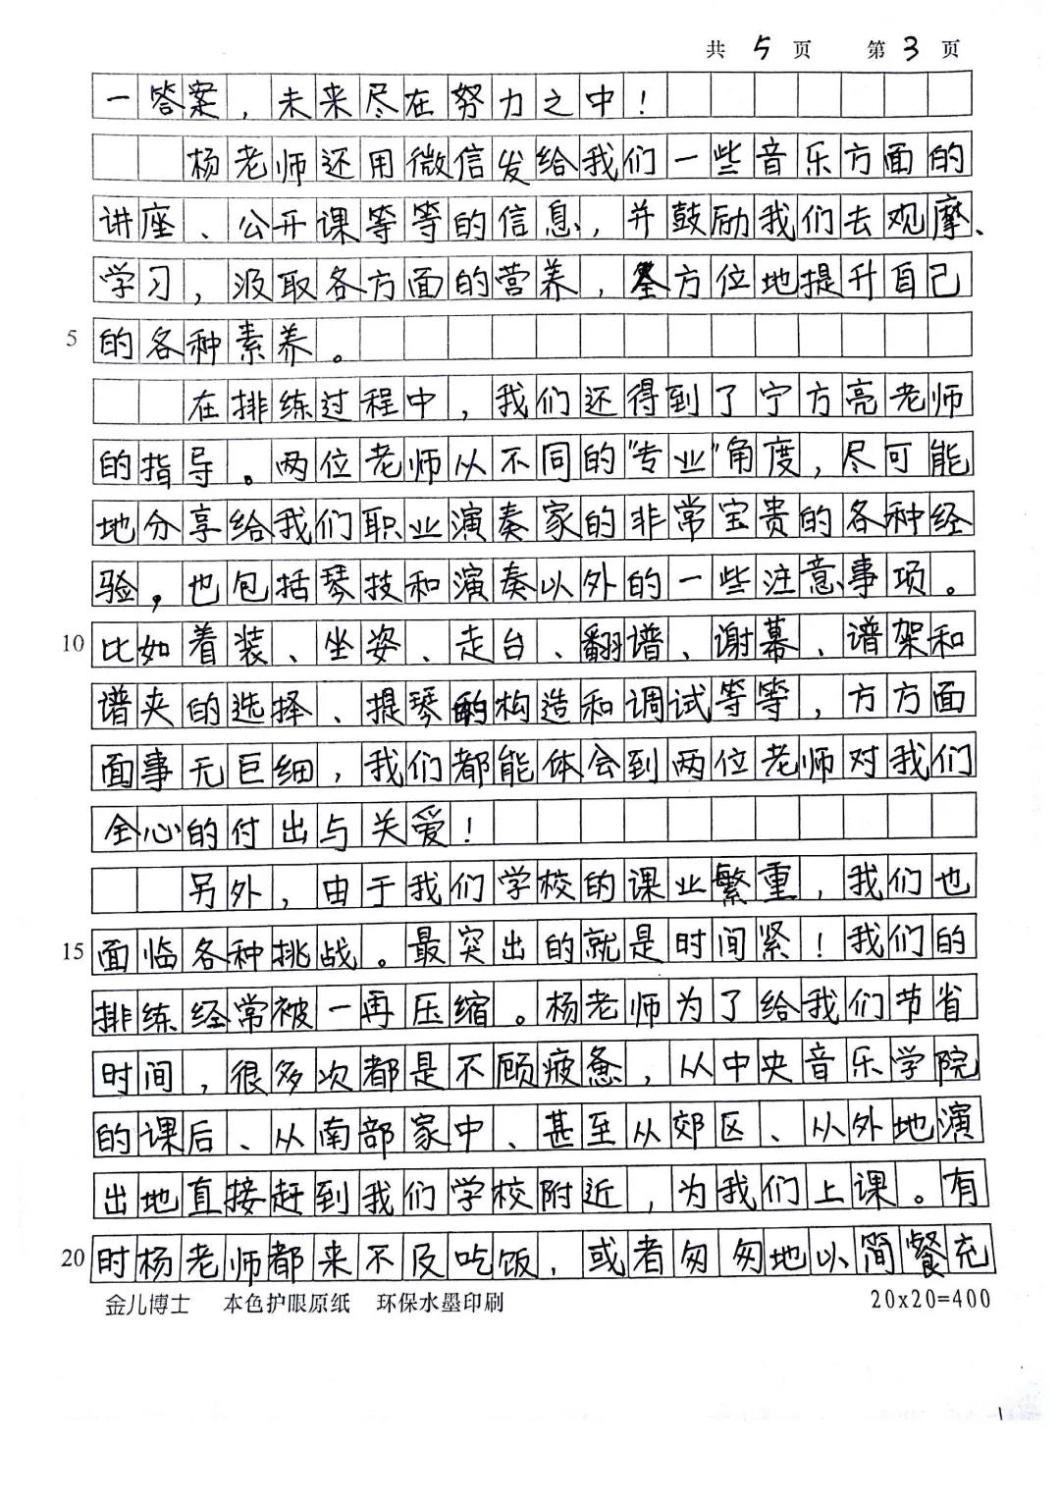 共 5 页 第 3 页
一答案，未来尽在努力之中！
杨老师还用微信发给我们一些音乐方面的
讲座、公开课等等的信息，并鼓励我们去观摩、
学习，汲取各方面的营养，全方位地提升自己
5 的各种素养。
在排练过程中，我们还得到了宁方亮老师
的指导。两位老师从不同的“专业”角度，尽可能
地分享给我们职业演奏家的非常宝贵的各种经
验，也包括琴技和演奏以外的一些注意事项。
10 比如着装、坐姿、走台、翻谱、谢幕、谱架和
谱夹的选择、提琴的构造和调试等等，方方面
面事无巨细，我们都能体会到两位老师对我们
全心的付出与关爱！
另外，由于我们学校的课业繁重，我们也
15 面临各种挑战。最突出的就是时间紧！我们的
排练经常被一再压缩。杨老师为了给我们节省
时间，很多次都是不顾疲惫，从中央音乐学院
的课后、从南部家中、甚至从郊区、从外地演
出地直接赶到我们学校附近，为我们上课。有
20 时杨老师都来不及吃饭，或者匆匆地以简餐充
金儿博士 本色护眼原纸 环保水墨印刷 20x20=400